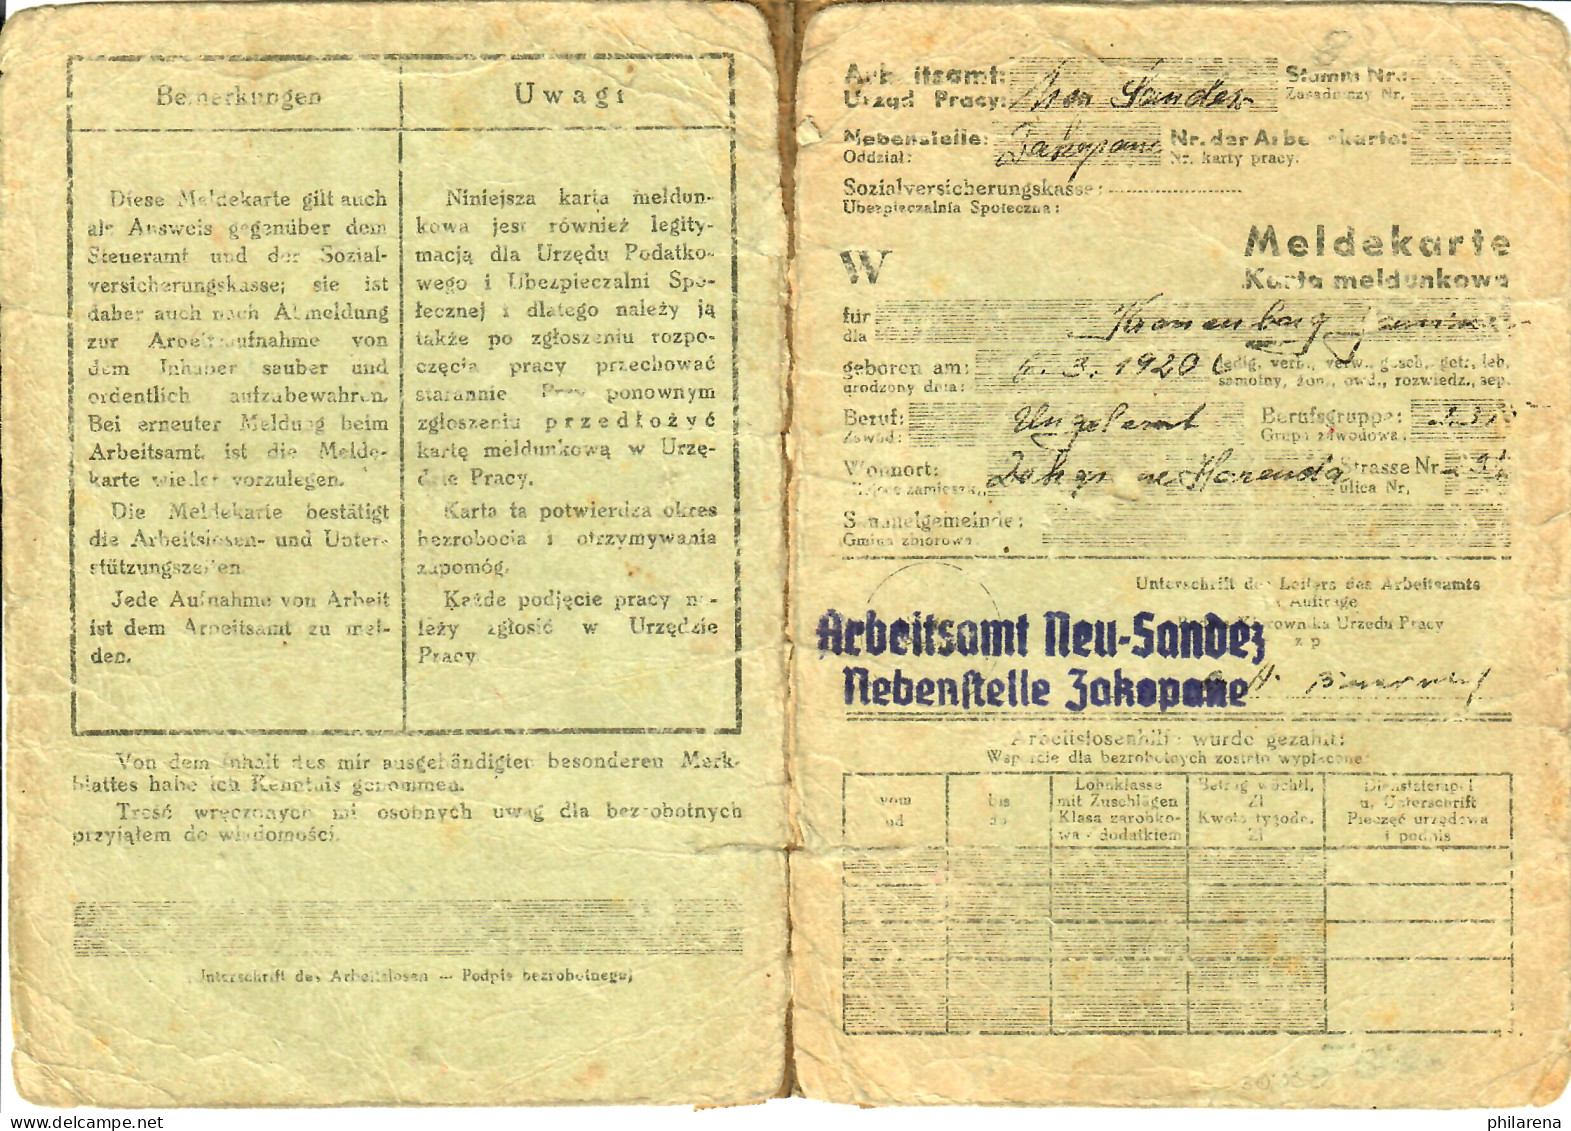 Bemerkungen
Diese Meldekarte gilt auch
als Ausweis gegenüber dem
Steueramt und der Sozial-
versicherungskasse; sie ist
daher auch nach Abmeldung
zur Arbeitsaufnahme von
dem Inhaber sauber und
ordentlich aufzubewahren.
Bei erneuter Meldung beim
Arbeitsamt ist die Melde-
karte wieder vorzulegen.
Die Meldekarte bestätigt
die Arbeitslosen- und Unter-
stützungszeiten
Jede Aufnahme von Arbeit
ist dem Arbeitsamt zu mel-
den.
Uwagi
Niniejsza karta meldun-
kowa jest również legity-
macją dla Urzędu Podatko-
wego i Ubezpieczalni Spo-
łecznej i dlatego należy ją
także po zgłoszeniu rozpo-
częcia pracy przechować
starannie Przy ponownym
zgłoszeniu przedłożyć
kartę meldunkową w Urzę-
dzie Pracy.
Karta ta potwierdza okres
bezrobocia i otrzymywania
zapomóg.
Każde podjęcie pracy na-
leży zgłosić w Urzędzie
Pracy
Von dem Inhalt des mir ausgehändigten besonderen Merk-
blattes habe ich Kenntnis genommen.
Treść wręczonych mi osobnych uwag dla bezrobotnych
przyjąłem do wiadomości.
(Unterschrift des Arbeitslosen — Podpis bezrobotnego)
Arbeitsamt: Sandez Stamm Nr.:
Urząd Pracy: Zasadniczy Nr.
Nebenstelle: Zakopane Nr. der Arbeitskarte:
Oddział: Nr. karty pracy.
Sozialversicherungskasse:
Ubezpieczalnia Społeczna:
Meldekarte
W Karta meldunkowa
für Kronenberg
dla
geboren am: 6. 3. 1920 ledig, verh., verw., gesch., getr., leb.
urodzony dnia: samotny, żon., owd., rozwiedz., sep.
Beruf: Berufsgruppe:
Zawód: Grupa zawodowa:
Wohnort: Zakopane Harenda Strasse Nr.
Miejsce zamieszk., ulica Nr.
Sammelgemeinde:
Gmina zbiorowa:
Unterschrift des Leiters des Arbeitsamts
Im Auftrage
Podpis Kierownika Urzędu Pracy
z p
Arbeitsamt Neu-Sandez
Nebenstelle Zakopane
Arbeitslosenhilfe wurde gezahlt:
Wsparcie dla bezrobotnych zostało wypłacone:
vom
od
bis
do
Lohnklasse
mit Zuschlägen
Klasa zarobko-
wa z dodatkiem
Betrag wöchtl.
Zl
Kwota tygodn.
Zl
Dienststempel
u. Unterschrift
Pieczęć urzędowa
i podpis
philarena